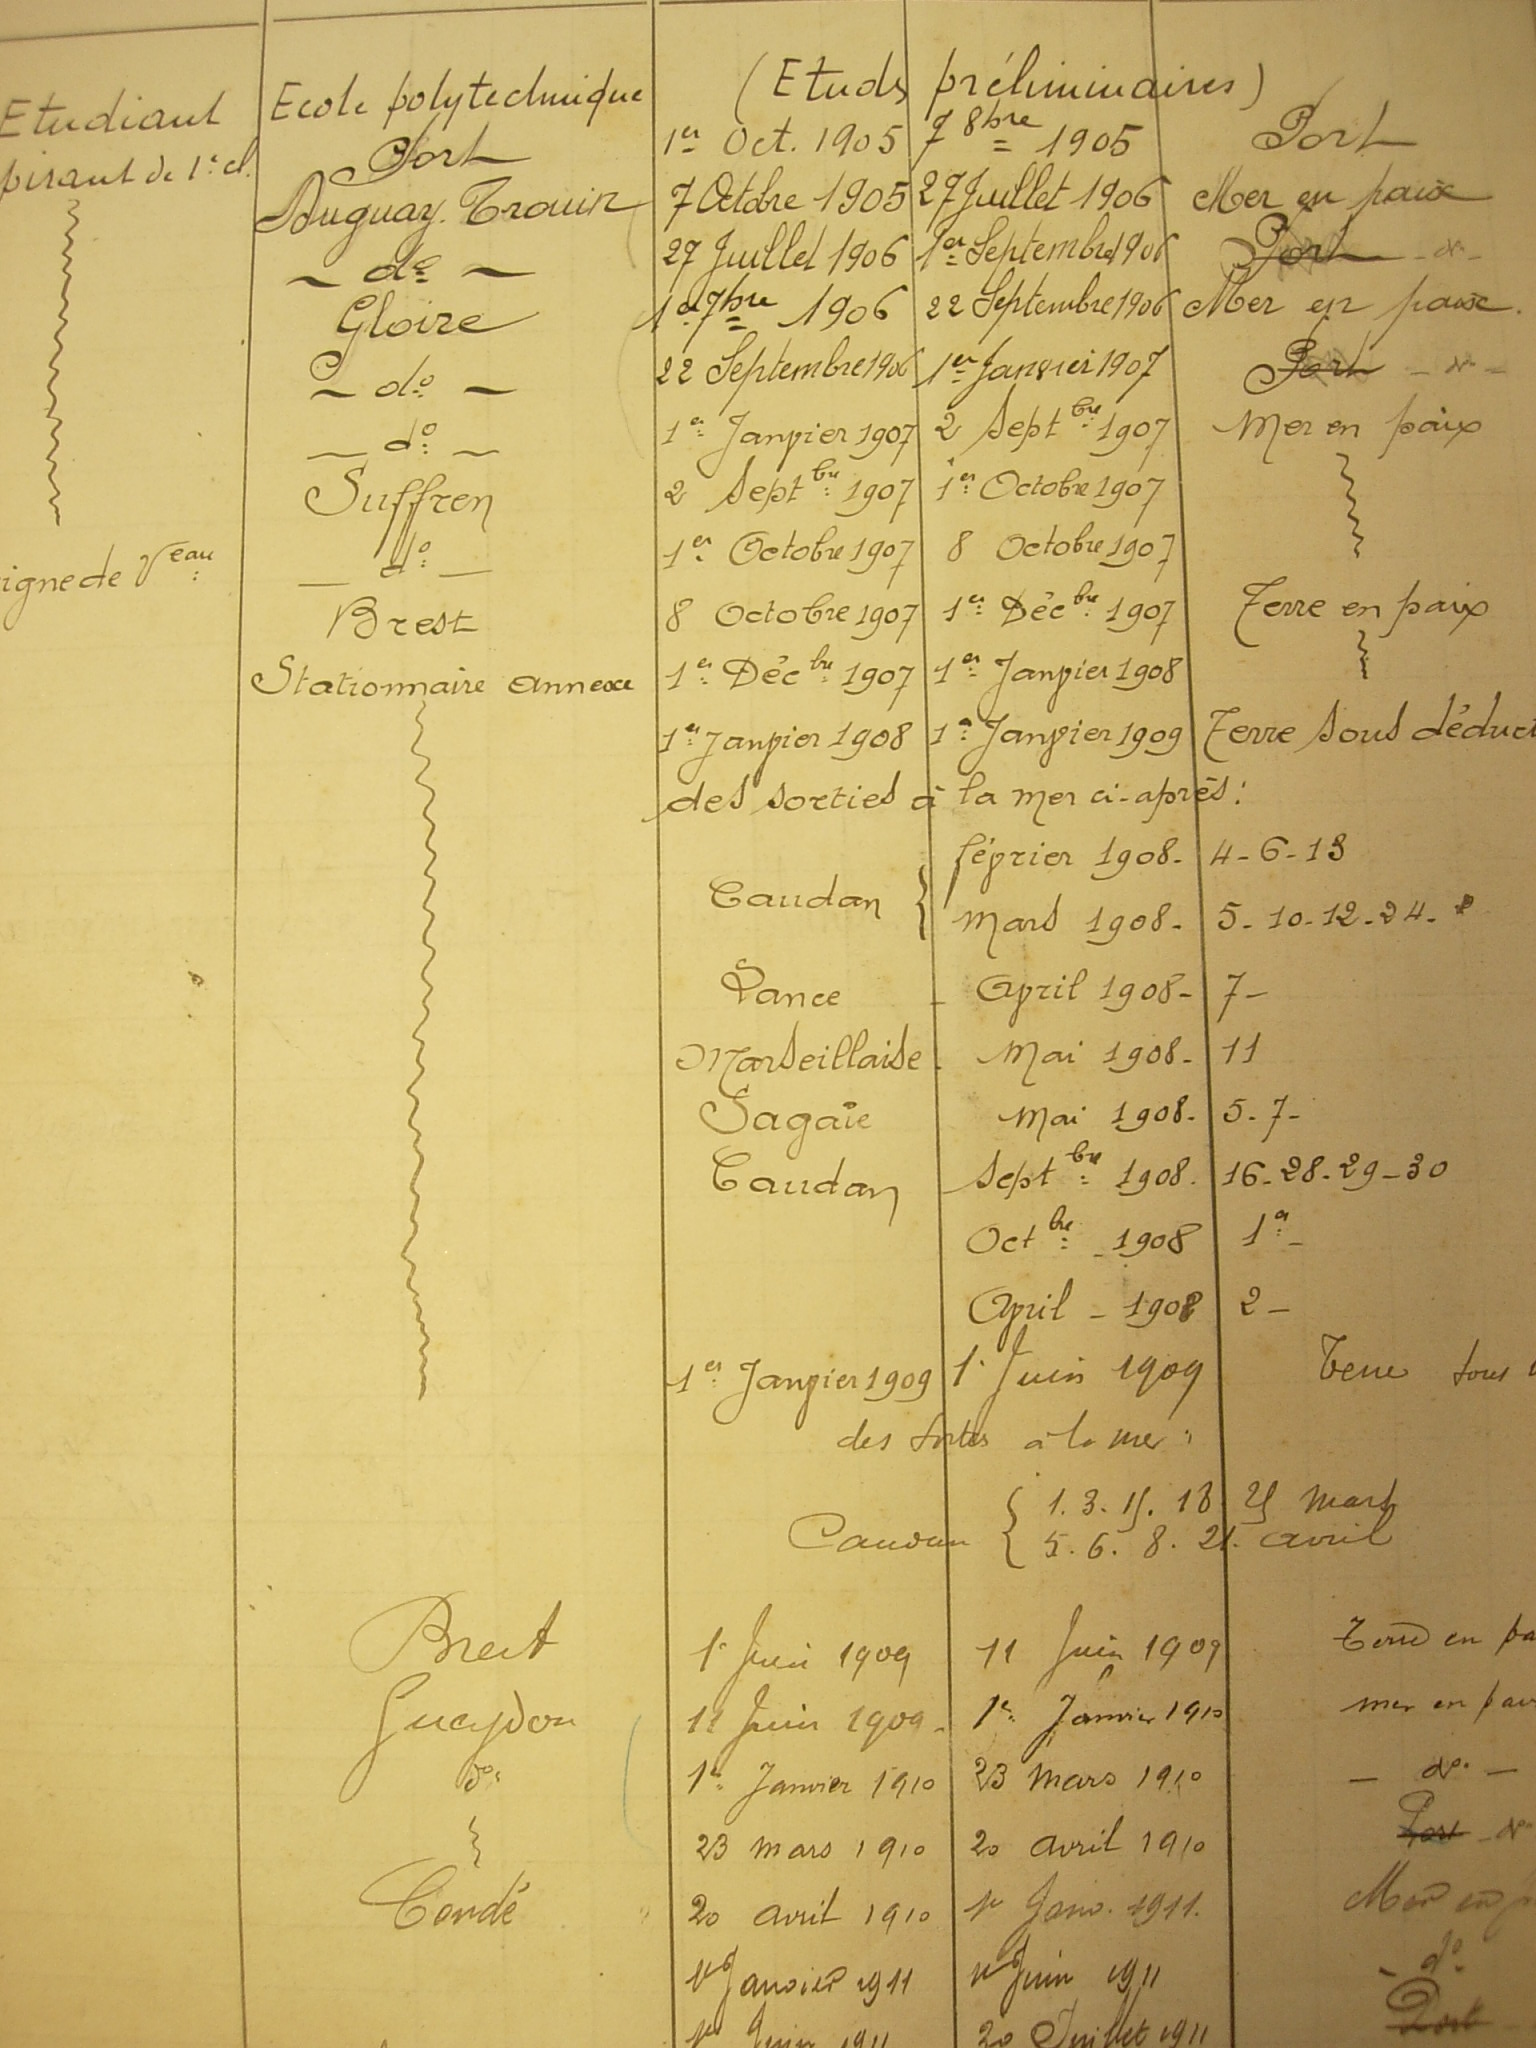 Etudiant Ecole polytechnique (Etuds préliminaires)
pirant de 1e cl. Port 1er Oct. 1905 7 8bre 1905 Port
Duguay-Trouin 7 Octobre 1905 27 Juillet 1906 Mer en paix
- do - 27 Juillet 1906 1er Septembre 1906 Port - do -
Gloire 1er 7bre 1906 22 Septembre 1906 Mer en paix.
- do - 22 Septembre 1906 1er Janvier 1907 Port - do -
- do - 1er Janvier 1907 2 Septbre 1907 Mer en paix
Suffren 2 Septbre 1907 1er Octobre 1907
igne de Veau - do - 1er Octobre 1907 8 Octobre 1907
Brest 8 Octobre 1907 1er Décbre 1907 Terre en paix
Stationnaire annexe 1er Décbre 1907 1er Janvier 1908
1er Janvier 1908 1er Janvier 1909 Terre sous déduct
des sorties à la mer ci-après:
Caudan { février 1908 - 4 - 6 - 13
Mars 1908 - 5 - 10 - 12 - 24 -
Lance - April 1908 - 7 -
Marseillaise - Mai 1908 - 11
Sagaïe Mai 1908 - 5 - 7 -
Caudan Septbre 1908 - 16 - 28 - 29 - 30
Octbre - 1908 1er -
April - 1908 2 -
1er Janvier 1909 1r Juin 1909 Terre sous
des sorties à la mer :
Caudan { 1. 3. 15. 18. 25 mars
5. 6. 8. 21. avril
Brest 1r Juin 1909 11 Juin 1909 Terre en pa
Gueydon 11 Juin 1909 - 1er Janvier 1910 mer en paix
do 1er Janvier 1910 23 mars 1910 - do -
23 mars 1910 20 avril 1910 Port - do
Condé 20 avril 1910 1er Janv. 1911. Mer en p
1er Janvier 1911 1er Juin 1911 - do -
1er Juin 1911 20 Juillet 1911 Port